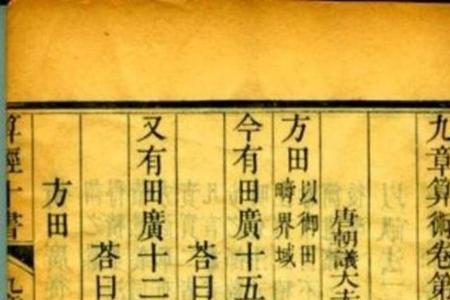 九章算術卷第
唐朝議大夫
方田以御田疇界域
今有田廣十五
荅曰
又有田廣十二
荅曰
方田
算經十書